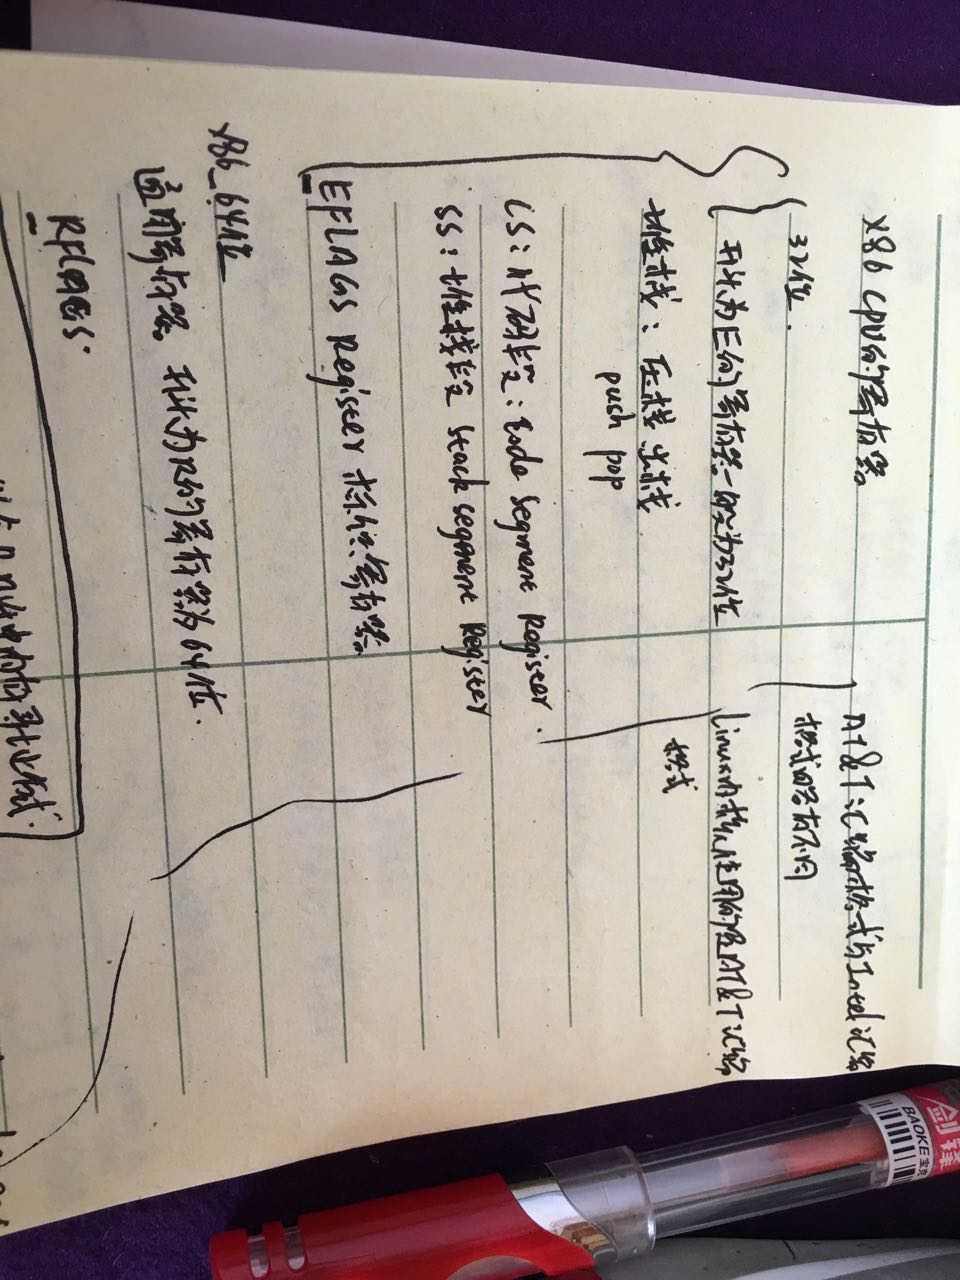 x86 CPU的寄存器
32位.
开头为E的寄存器一般为32位
堆栈: 压栈 出栈
push pop
CS: 代码段: Code Segment Register.
SS: 堆栈段 Stack Segment Register
EFLAGS Register 标志寄存器
x86_64位
通用寄存器. 开头为R的寄存器为64位.
RFLAGS.
AT&T汇编格式与Intel汇编
格式略有不同
Linux内核使用的是AT&T汇编
格式
BAOKE 宝克
剑锋